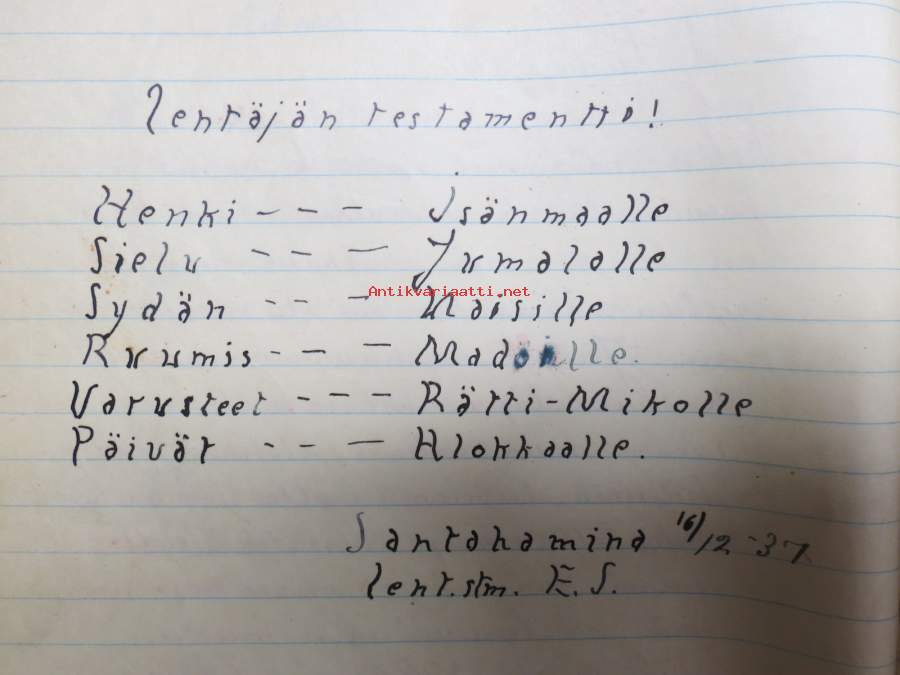 Lentäjän testamentti!
Henki - - - Isänmaalle
Sielu - - - Jumalalle
Antikvariaatti.net
Sydän - - - Naisille
Ruumis - - - Madoille.
Varusteet - - - Rätti-Mikolle
Päivät - - - Alokkaalle.
Santahamina 16/12-37
lent.stm. E. S.